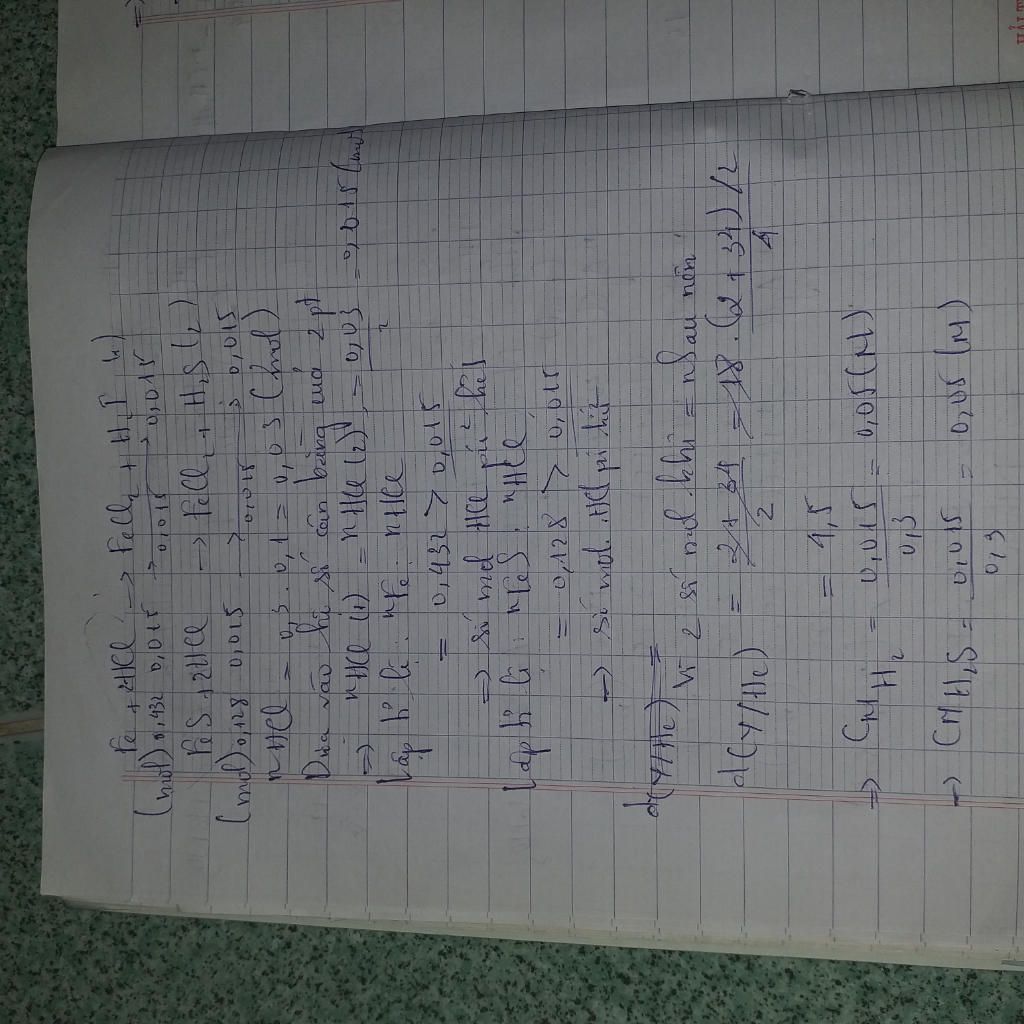 Fe + 2HCl → FeCl₂ + H₂↑ (1)
(mol) 0,432 0,015 → 0,015 → 0,015
FeS + 2HCl → FeCl₂ + H₂S (2)
(mol) 0,128 0,015 → 0,015 → 0,015
nHCl = 0,3 . 0,1 = 0,03 (mol)
Dựa vào hệ số cân bằng của 2 pt
⇒ nHCl (1) = nHCl (2) = 0,03/2 = 0,015 (mol)
Lập tỉ lệ: nFe : nHCl
= 0,432 > 0,015
⇒ số mol HCl pứ hết
Lập tỉ lệ: nFeS : nHCl
= 0,128 > 0,015
⇒ số mol HCl pứ hết
d(Y/He) =
Vì 2 số mol khí = nhau nên
d(Y/He) = 2+34/2 = 18 . (2+34)/2/4
= 4,5
⇒ CM H₂ = 0,015/0,3 = 0,05 (M)
⇒ CM H₂S = 0,015/0,3 = 0,05 (M)